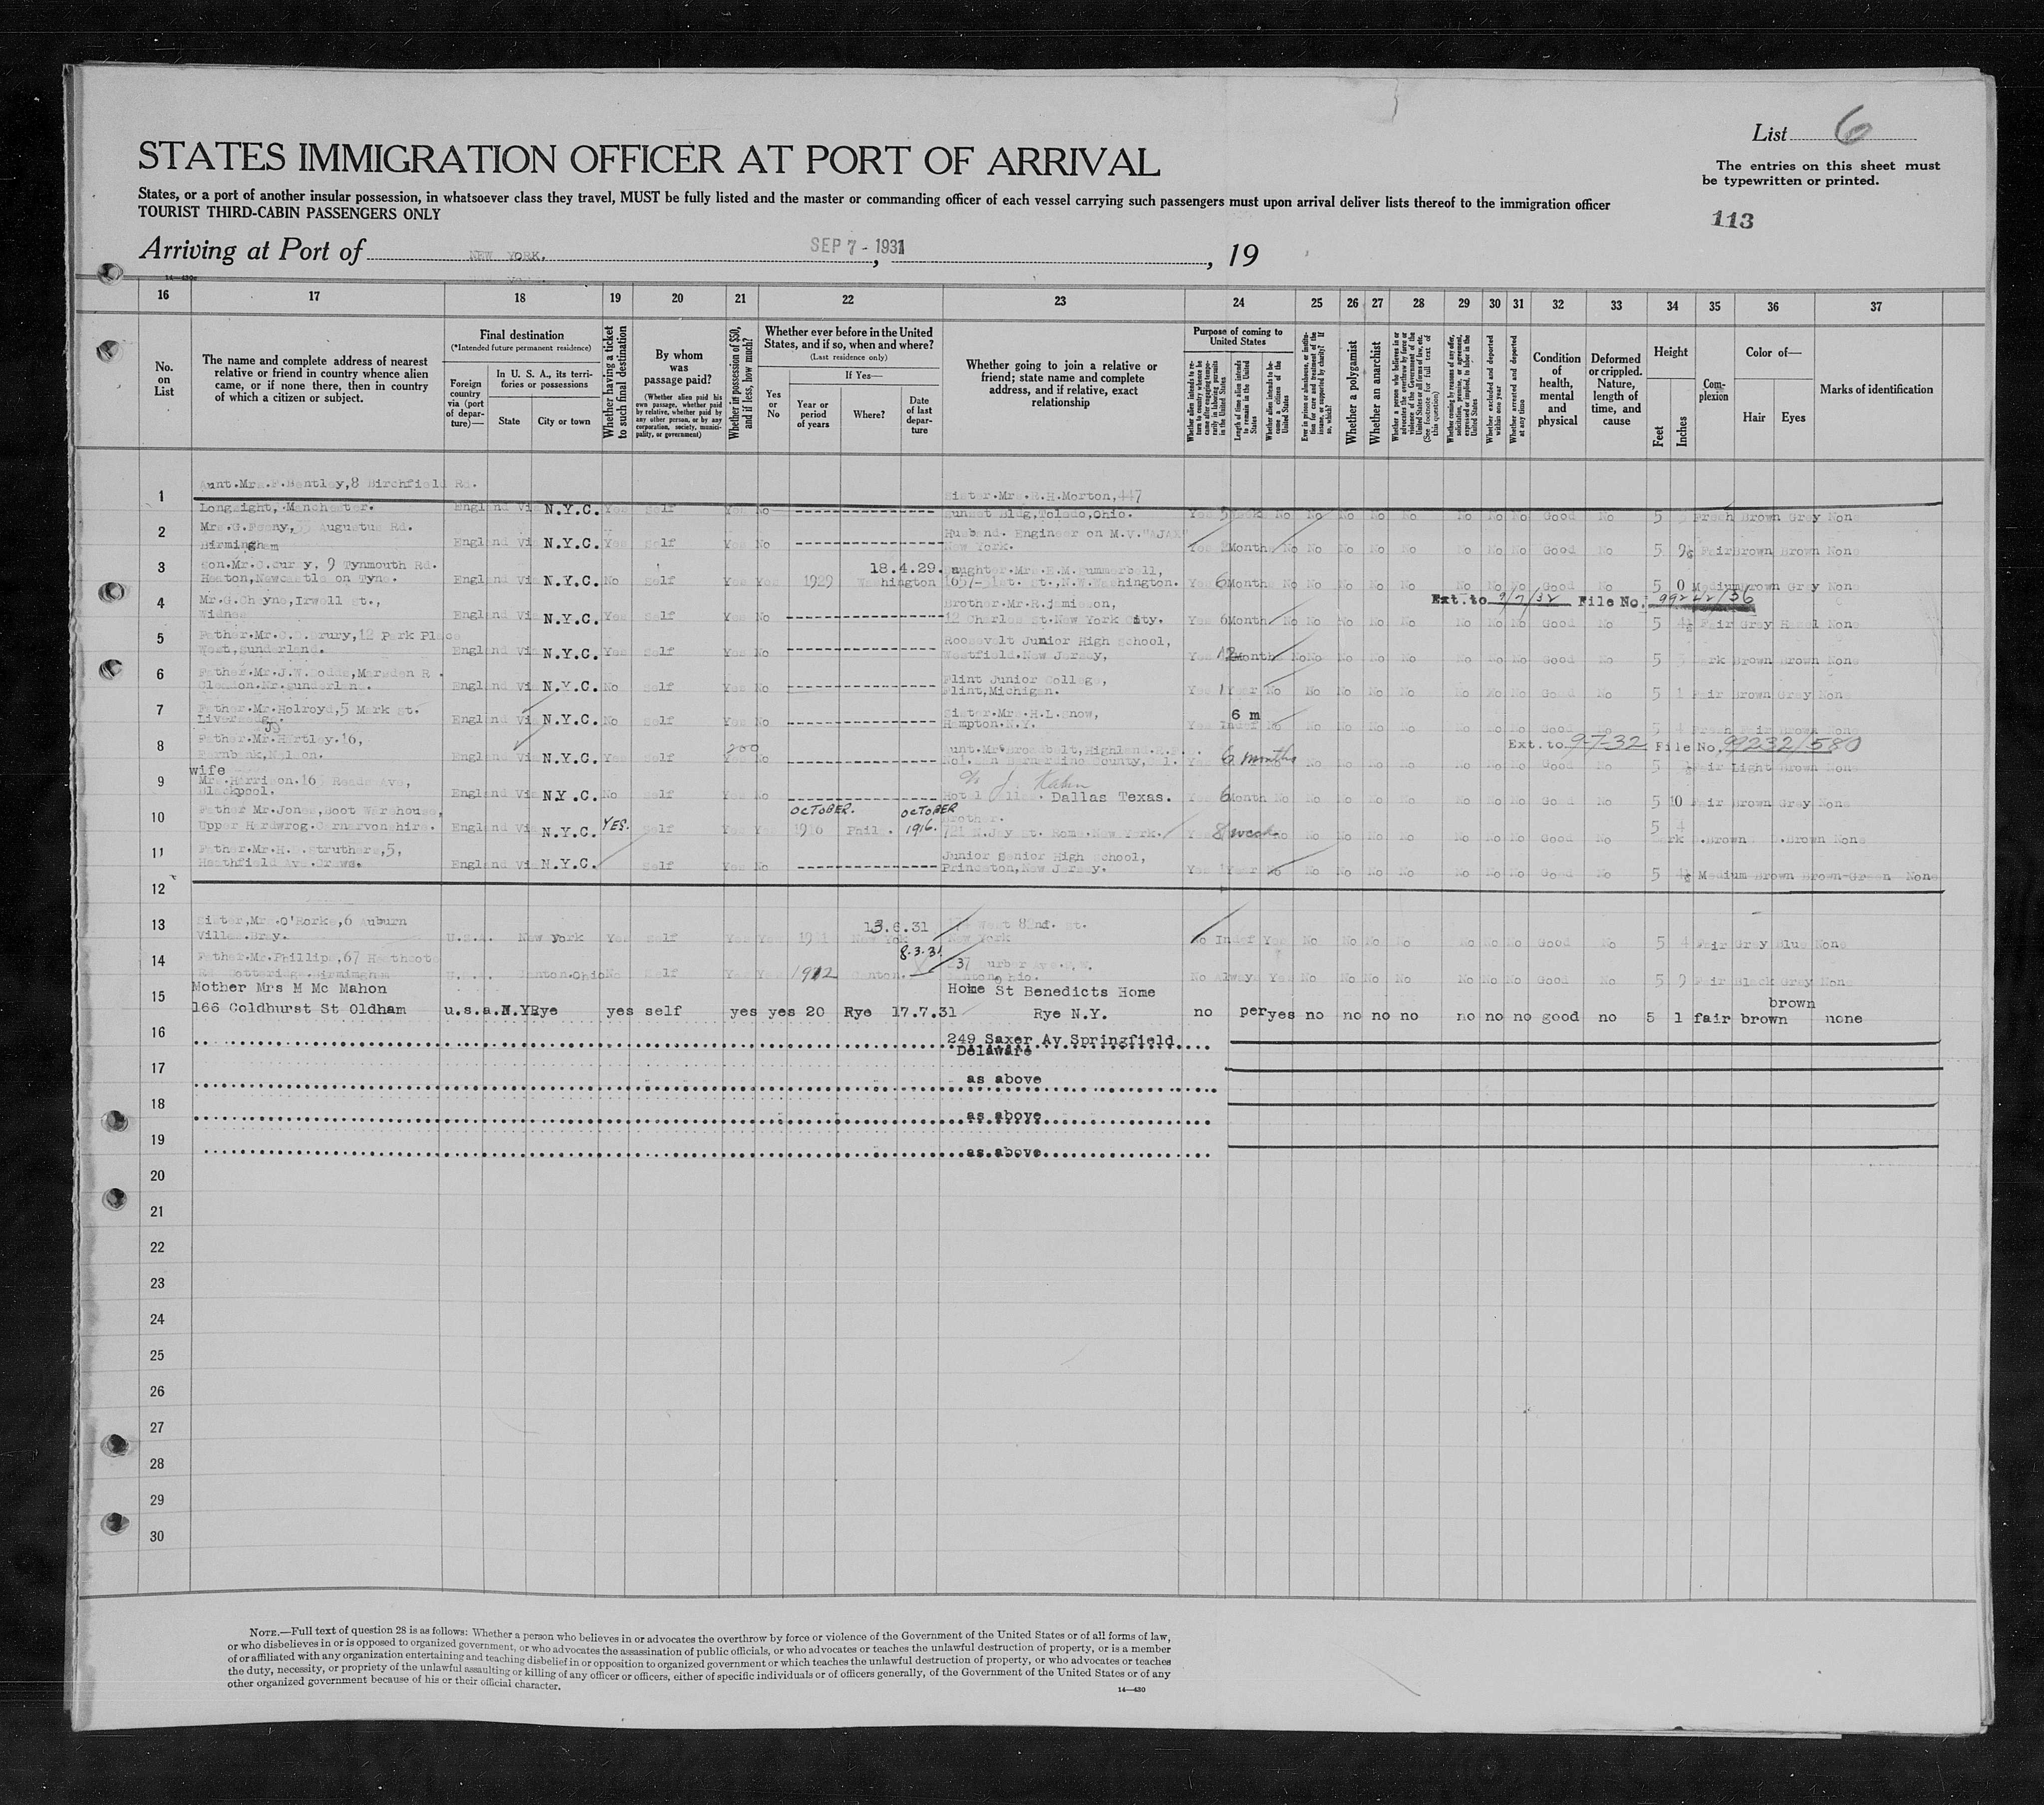 List 6
STATES IMMIGRATION OFFICER AT PORT OF ARRIVAL
The entries on this sheet must
be typewritten or printed.
States, or a port of another insular possession, in whatsoever class they travel, MUST be fully listed and the master or commanding officer of each vessel carrying such passengers must upon arrival deliver lists thereof to the immigration officer
TOURIST THIRD-CABIN PASSENGERS ONLY
113
Arriving at Port of NEW YORK. SEP 7 - 1931, 19
16 17 18 19 20 21 22 23 24 25 26 27 28 29 30 31 32 33 34 35 36 37
No. on List
The name and complete address of nearest
relative or friend in country whence alien
came, or if none there, then in country
of which a citizen or subject.
Final destination
(*Intended future permanent residence)
Foreign country via (port of departure)—
In U. S. A., its territories or possessions
State
City or town
Whether having a ticket to such final destination
By whom was passage paid?
(Whether alien paid his own passage, whether paid by relative, whether paid by any other person, or by any corporation, society, municipality, or government)
Whether in possession of $50, and if less, how much?
Whether ever before in the United States, and if so, when and where?
(Last residence only)
Yes or No
If Yes—
Year or period of years
Where?
Date of last departure
Whether going to join a relative or
friend; state name and complete
address, and if relative, exact
relationship
Purpose of coming to United States
Whether alien intends to return to country whence he came after engaging temporarily in laboring pursuits in the United States
Length of time alien intends to remain in the United States
Whether alien intends to become a citizen of the United States
Ever in prison or almshouse or institution for care and treatment of the insane, or supported by charity? If so, which?
Whether a polygamist
Whether an anarchist
Whether coming by reason of any offer, solicitation, promise, or agreement, expressed or implied, to labor in the United States
Whether excluded and deported within one year
Whether arrested and deported at any time
Condition of health, mental and physical
Deformed or crippled. Nature, length of time, and cause
Height
Feet
Inches
Complexion
Color of—
Hair
Eyes
Marks of identification
1 Aunt.Mrs.F.Bentley,8 Birchfield Rd.
Longsight, Manchester. England Via N.Y.C. Yes Self Yes No Sister.Mrs.R.H.Morton,447
Sunset Bldg,Toledo,Ohio. Yes No No No No No No No No Good No 5 Fresh Brown Grey None
2 Augustus Rd.
Birmingham England Via N.Y.C. Yes Self Yes No Husband. Engineer on M.V."AJAX"
New York. Yes Months No No No No No No No No Good No 5 9½ Fair Brown Brown None
3 9 Tynmouth Rd.
Heaton,Newcastle on Tyne. England Via N.Y.C. No Self Yes Yes 1929 Washington 18.4.29. Daughter.Mrs.E.M.Summerbell,
1657-31st. St.,N.W.Washington. Yes 6 Months No No No No No No No No Good No 5 0 Medium Brown Grey None
Ext. to 9/7/32 File No.
4 Mr.G.Cheyne,Irwell St.,
Widnes England Via N.Y.C. Yes Self Yes No Brother.Mr.R.Jamieson,
12 Charles St.New York City. Yes 6 Months No No No No No No No No Good No 5 4½ Fair Grey Hazel None
5 Father.Mr.C.D.Drury,12 Park Place
West,Sunderland. England Via N.Y.C. Yes Self Yes No Roosevelt Junior High School,
Westfield.New Jersey, Yes 12 Months No No No No No No No No Good No 5 Dark Brown Brown None
6 Father.Mr.J.W.Dodds,Marsden R
Cleadon.Nr.Sunderland. England Via N.Y.C. No Self Yes No Flint Junior College,
Flint,Michigan. Yes 1 Year No No No No No No No No Good No 5 1 Fair Brown Grey None
7 Father.Mr.Holroyd,5 Mark St.
Liversedge. England Via N.Y.C. No Self Yes No Sister.Mrs.H.L.Snow,
Hampton.N.Y. Yes 6 m Indef No No No No No No No No Good No 5 4 Fresh Fair Brown None
8 Father.Mr.Hartley.16,
Fernbank,Nelson. England Via N.Y.C. Yes Self 200 Yes No Aunt.Mrs Broadbelt,Highland.R.F.
No1.San Bernardino County,Cal. Yes 6 months No No No No No No No Good No 5 Fair Light Brown None
Ext. to 9-7-32 File No. 99232/580
9 wife
Mrs.Harrison.16 Reads Ave,
Blackpool. England Via N.Y.C. No Self Yes No c/o J. Kahn
Hotel Dallas. Dallas Texas. Yes 6 Month No No No No No No No No Good No 5 10 Fair Brown Grey None
10 Father Mr.Jones,Boot Warehouse,
Upper Carnarvonshire. England Via N.Y.C. YES. Self Yes Yes OCTOBER. 1916 Phil. OCTOBER 1916. Brother.
721 N.Jay St. Rome.New York. Yes 8 weeks No No No No No No No No Good No 5 4 Dark .Brown .Brown None
11 Father.Mr.H. Struthers,5,
Heathfield Ave.Crewe. England Via N.Y.C. Self Yes No Junior Senior High School,
Princeton,New Jersey. Yes 1 Year No No No No No No No No Good No 5 Medium Brown Brown-Green None
12
13 Sister,Mrs.O'Rorke,6 Auburn
Villas.Bray. U.S.A. New York Yes Self Yes Yes New York 13.6.31 West 82nd. St.
New York No Indef Yes No No No No No No No Good No 5 4 Fair Grey Blue None
14 Father.Mr.Phillips,67 Heathcote
Rd Cotteridge.Birmingham U.S.A. Canton.Ohio No Self Yes Yes 1912 Canton. 8.3.31
Canton Ohio. No Always Yes No No No No No No No Good No 5 9 Fair Black Grey None
15 Mother Mrs M Mc Mahon
166 Coldhurst St Oldham u.s.a. N.Y Rye yes self yes yes 20 Rye 17.7.31 Home St Benedicts Home
Rye N.Y. no per yes no no no no no no no good no 5 1 fair brown brown none
16 249 Saxer Av Springfield
Delaware
17 as above
18 as above
19 as above
20
21
22
23
24
25
26
27
28
29
30
NOTE.—Full text of question 28 is as follows: Whether a person who believes in or advocates the overthrow by force or violence of the Government of the United States or of all forms of law,
or who disbelieves in or is opposed to organized government, or who advocates the assassination of public officials, or who advocates or teaches the unlawful destruction of property, or is a member
of or affiliated with any organization entertaining and teaching disbelief in or opposition to organized government or which teaches the unlawful destruction of property, or who advocates or teaches
the duty, necessity, or propriety of the unlawful assaulting or killing of any officer or officers, either of specific individuals or of officers generally, of the Government of the United States or of any
other organized government because of his or their official character.
14—430